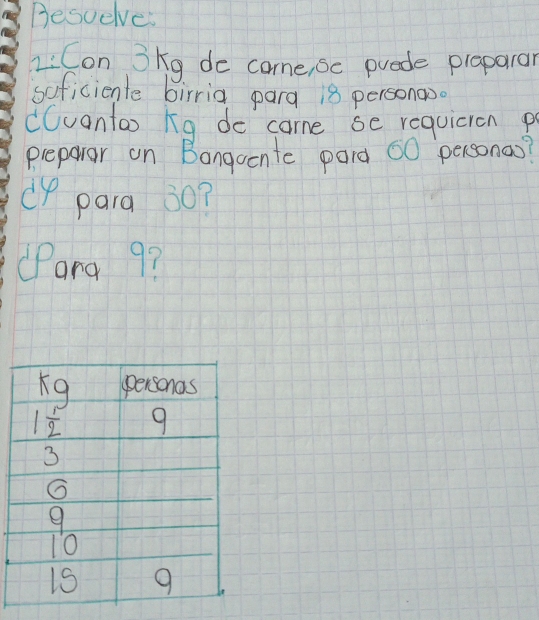 Resuelve:
2: Con 3 Kg de carne, se puede preparar
suficiente birria para 18 personas.
¿Cuantos Kg de carne se requieren p
preparar un Banquente para 60 personas?
¿Y para 30?
¿Para 9?
Kg personas
1 1/2 9
3
6
9
10
15 9